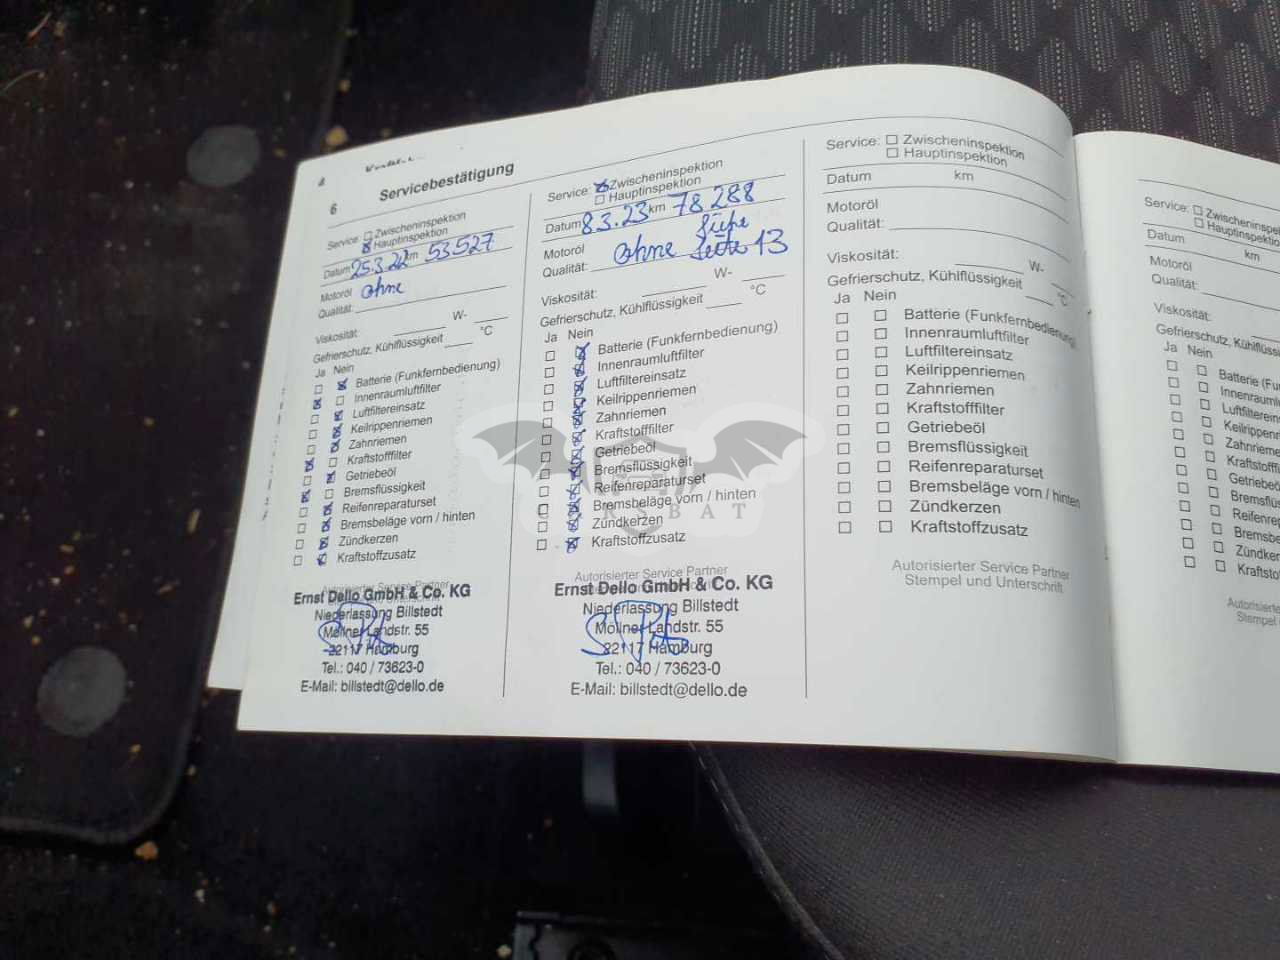 6 Servicebestätigung
Service: Zwischeninspektion
Hauptinspektion
Datum 25.3.22 km 53527
Motoröl ohne
Qualität:
Viskosität: W-
Gefrierschutz, Kühlflüssigkeit °C
Ja Nein
Batterie (Funkfernbedienung)
Innenraumluftfilter
Luftfiltereinsatz
Keilrippenriemen
Zahnriemen
Kraftstofffilter
Getriebeöl
Bremsflüssigkeit
Reifenreparaturset
Bremsbeläge vorn / hinten
Zündkerzen
Kraftstoffzusatz
Autorisierter Service Partner
Ernst Dello GmbH & Co. KG
Niederlassung Billstedt
Möllner Landstr. 55
22117 Hamburg
Tel.: 040 / 73623-0
E-Mail: billstedt@dello.de
Service: Zwischeninspektion
Hauptinspektion
Datum 8.3.23 km 78288
Motoröl Siehe
Qualität: ohne Seite 13
Viskosität: W-
Gefrierschutz, Kühlflüssigkeit °C
Ja Nein
Batterie (Funkfernbedienung)
Innenraumluftfilter
Luftfiltereinsatz
Keilrippenriemen
Zahnriemen
Kraftstofffilter
Getriebeöl
Bremsflüssigkeit
Reifenreparaturset
Bremsbeläge vorn / hinten
Zündkerzen
Kraftstoffzusatz
Autorisierter Service Partner
Ernst Dello GmbH & Co. KG
Niederlassung Billstedt
Möllner Landstr. 55
22117 Hamburg
Tel.: 040 / 73623-0
E-Mail: billstedt@dello.de
Service: Zwischeninspektion
Hauptinspektion
Datum km
Motoröl
Qualität:
Viskosität: W-
Gefrierschutz, Kühlflüssigkeit °C
Ja Nein
Batterie (Funkfernbedienung)
Innenraumluftfilter
Luftfiltereinsatz
Keilrippenriemen
Zahnriemen
Kraftstofffilter
Getriebeöl
Bremsflüssigkeit
Reifenreparaturset
Bremsbeläge vorn / hinten
Zündkerzen
Kraftstoffzusatz
Autorisierter Service Partner
Stempel und Unterschrift
Service: Zwischeninspektion
Hauptinspektion
Datum km
Motoröl
Qualität:
Viskosität:
Gefrierschutz, Kühlflüssig
Ja Nein
Batterie (Fu
Innenrauml
Luftfilterein
Keilrippenri
Zahnrieme
Kraftstofff
Getriebeö
Bremsflüs
Reifenrep
Bremsbe
Zündker
Kraftsto
Autorisierte
Stempel